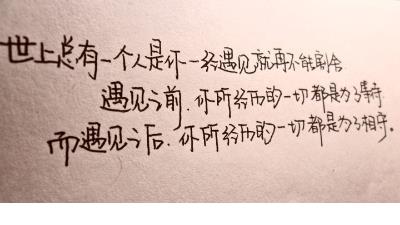 世上总有一个人是你一经遇见就再不能割舍
遇见之前.你所经历的一切都是为了等待
而遇见之后.你所经历的一切都是为了相守。